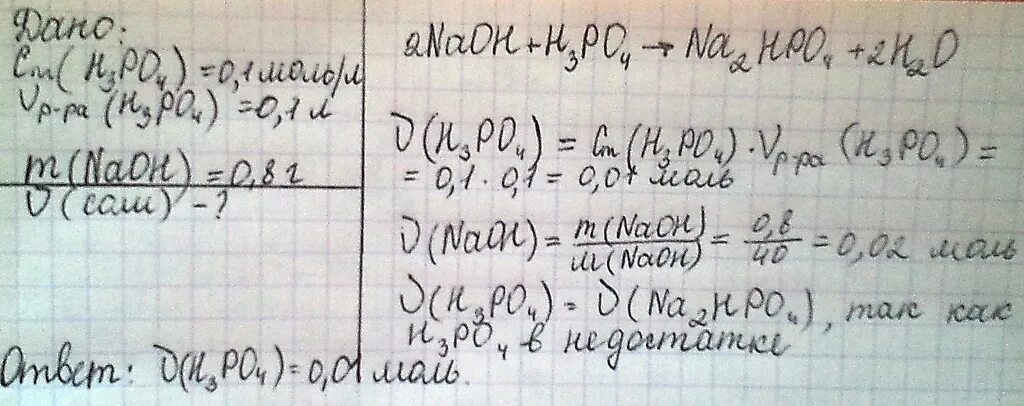 Дано:
Cm(H₃PO₄)=0,1 моль/л
Vр-ра (H₃PO₄)=0,1 л
m(NaOH)=0,8 г
ν(соли)-?
2NaOH+H₃PO₄→Na₂HPO₄+2H₂O
ν(H₃PO₄)=Cm(H₃PO₄)·Vр-ра(H₃PO₄)=
=0,1·0,1=0,01 моль
ν(NaOH)=m(NaOH)/M(NaOH)=0,8/40=0,02 моль
ν(H₃PO₄)=ν(Na₂HPO₄), так как
H₃PO₄ в недостатке
Ответ: ν(H₃PO₄)=0,01 моль.